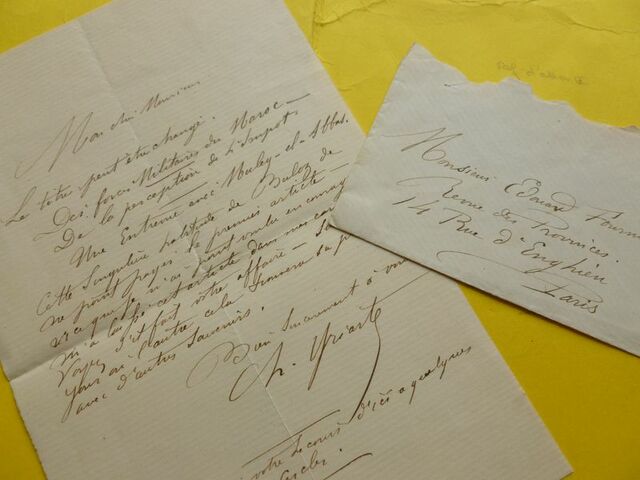 Mon cher Monsieur
Le titre peut être changé.
Des forces Militaires du Maroc —
De la perception de l'Impôt
Une Entrevue avec Muley-el-Abbas.
Cette Singulière habitude de Buloz de
ne point payer le premier article —
m'a laissé cet article dans mes
Voyez s'il fait votre affaire —
jour ou l'autre cela
avec d'autres Saveurs.
Bien Sincèrement à vous
Ch. Yriarte
votre Secours d'ici à quelques
Monsieur Edouard Fournier
Revue des Provinces.
14 Rue d'Enghien
Paris